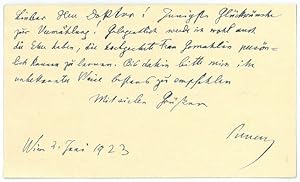 Lieber Herr Doktor! Innigste Glückwünsche
zur Vermählung! Gelegentlich werde ich wohl auch
die Ehre haben, die hochgeschätzte Frau Gemahlin persön-
lich kennen zu lernen. Bis dahin bitte mich ihr
unbekannter Weise bestens zu empfehlen
Mit vielen Grüßen
Wien 2. Juni 1923